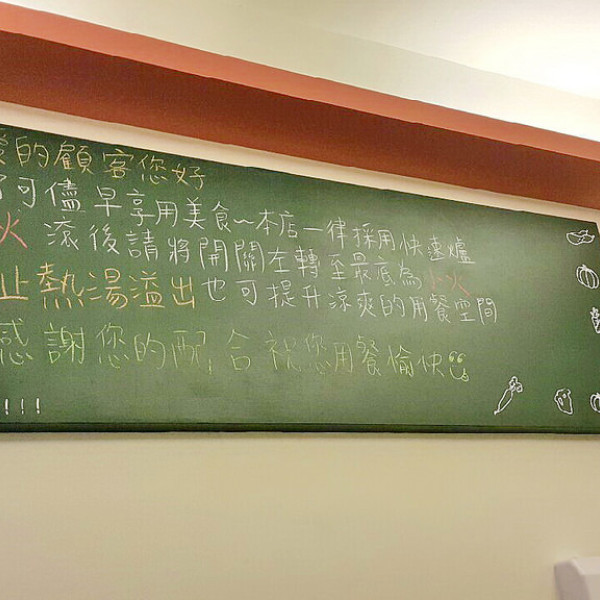 愛的顧客您好
了可儘早享用美食~本店一律採用快速爐
火滾後請將開關左轉至最底為小火
止熱湯溢出也可提升涼爽的用餐空間
感謝您的配合祝您用餐愉快
!!!!